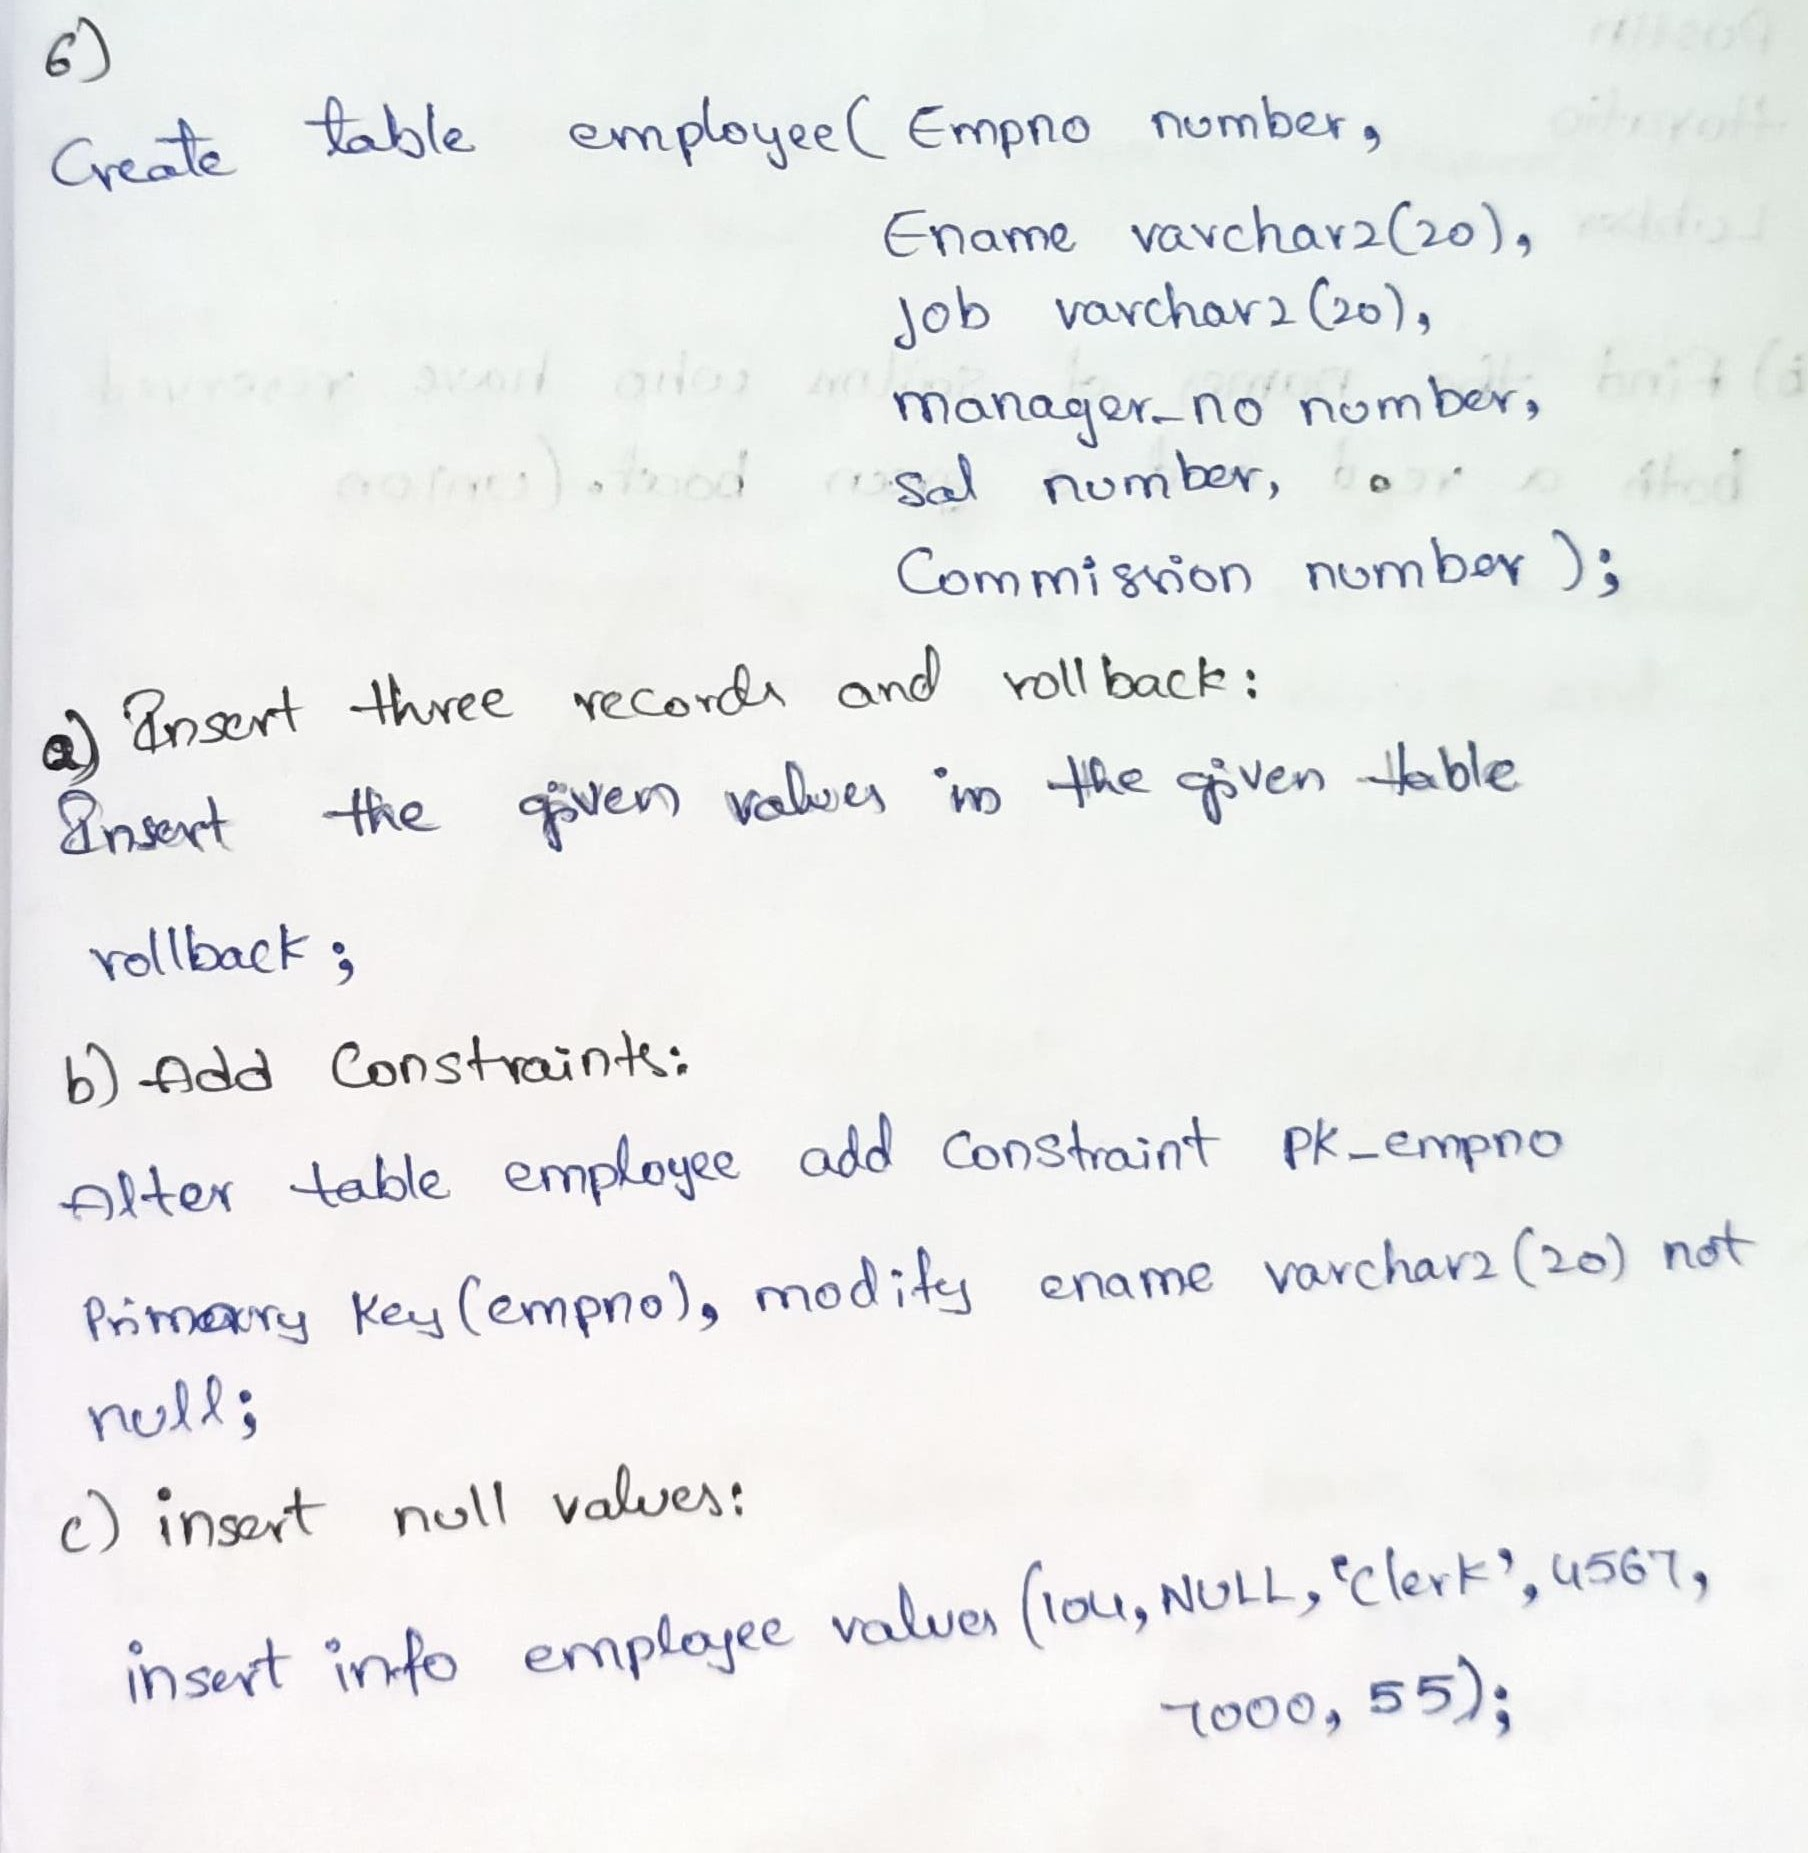 6)
Create table employee( Empno number,
Ename varchar2(20),
job varchar2(20),
manager_no number,
sal number,
Commission number );
a) Insert three records and rollback:
Insert the given values in the given table
rollback;
b) Add Constraints:
Alter table employee add constraint pk_empno
Primary key(empno), modify ename varchar2(20) not
null;
c) insert null values:
insert into employee values (104, NULL, 'Clerk', 4567,
7000, 55);